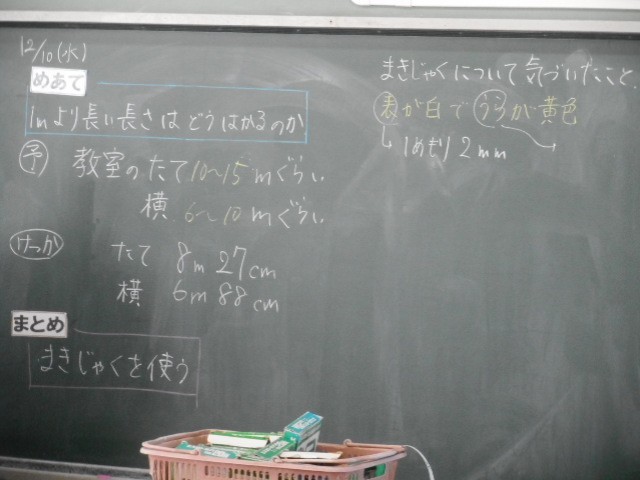 12/10(水)
めあて
1mより長い長さはどうはかるのか
予 教室のたて10~15mぐらい
横 6~10mぐらい
けっか たて 8m 27cm
横 6m 88cm
まとめ
まきじゃくを使う
まきじゃくについて気づいたこと.
表が白で うらが黄色
1めもり2mm